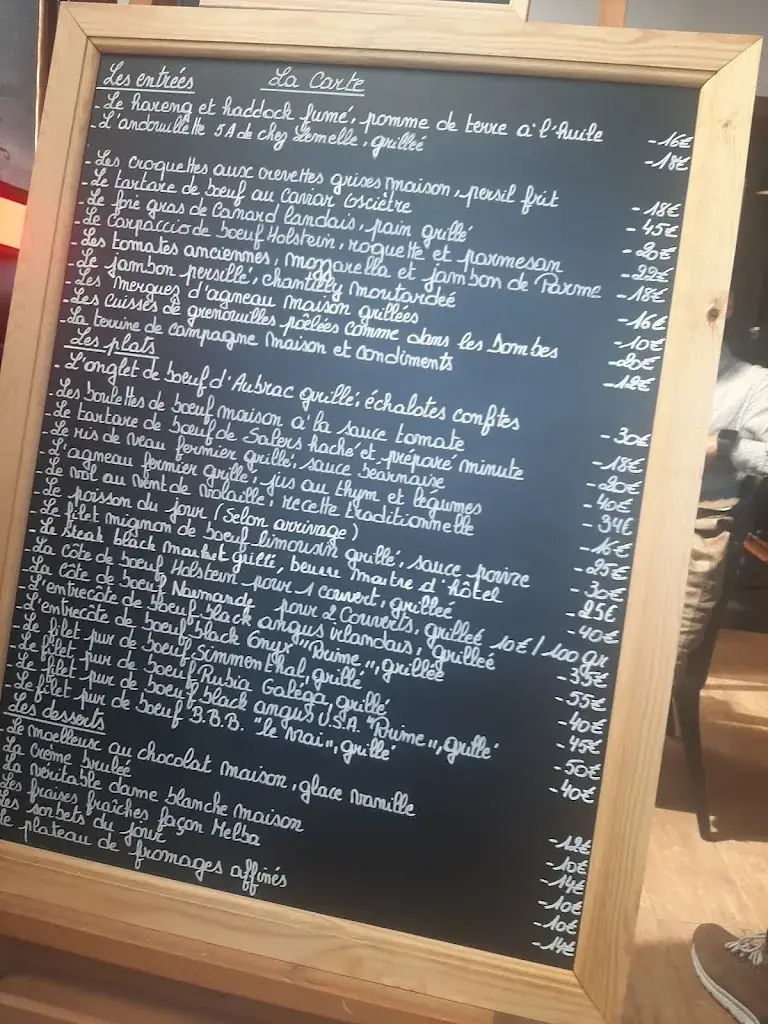 Les entrées La Carte
- Le hareng et haddock fumé, pomme de terre à l'huile -16€
- L'andouillette 5A de chez Lemelle, grillée -18€
- Les croquettes aux crevettes grises maison, persil frit -18€
- Le tartare de bœuf au caviar Osciètre -45€
- Le foie gras de Canard landais, pain grillé -20€
- Le carpaccio de boeuf Holstein, roquette et parmesan -22€
- Les tomates anciennes, mozzarella et jambon de Parme -18€
- Le jambon persillé, chantilly moutardée -16€
- Les mergues d'agneau maison grillées -10€
- Les cuisses de grenouilles pôelées comme dans les Dombes -20€
- La terrine de campagne maison et condiments -12€
Les plats
- L'onglet de bœuf d'Aubrac grillé, échalotes confites -30€
- Les boulettes de bœuf maison à la sauce tomate -18€
- Le tartare de bœuf de Salers haché et préparé minute -20€
- Le ris de veau fermier grillé, sauce bearnaise -40€
- L'agneau fermier grillé, jus au thym et légumes -34€
- Le vol au vent de volaille, recette traditionnelle -16€
- Le poisson du jour (Selon arrivage) -25€
- Le filet mignon de boeuf limousin grillé, sauce poivre -30€
- Le steak black market grillé, beurre maitre d'hôtel -25€
- La côte de bœuf Holstein pour 1 couvert, grillée -40€
- La côte de boeuf Normande pour 2 Couverts, grillée 10€/100 gr
- L'entrecôte de boeuf black angus irlandais, grillée -35€
- L'entrecôte de bœuf black Onyx "Prime", grillée -55€
- Le filet pur de bœuf Simmenthal, grillé -40€
- Le filet pur de bœuf Rubia Galéga, grillé -45€
- Le filet pur de boeuf black angus U.S.A. "Prime", grillé -50€
- Le filet pur de boeuf B.B.B. "le vrai", grillé -40€
Les desserts
- Le moelleux au chocolat maison, glace vanille -12€
La crème brulée -10€
La véritable dame blanche maison -14€
Les fraises fraîches façon Melba -10€
Les sorbets du jour -10€
Le plateau de fromages affinés -14€